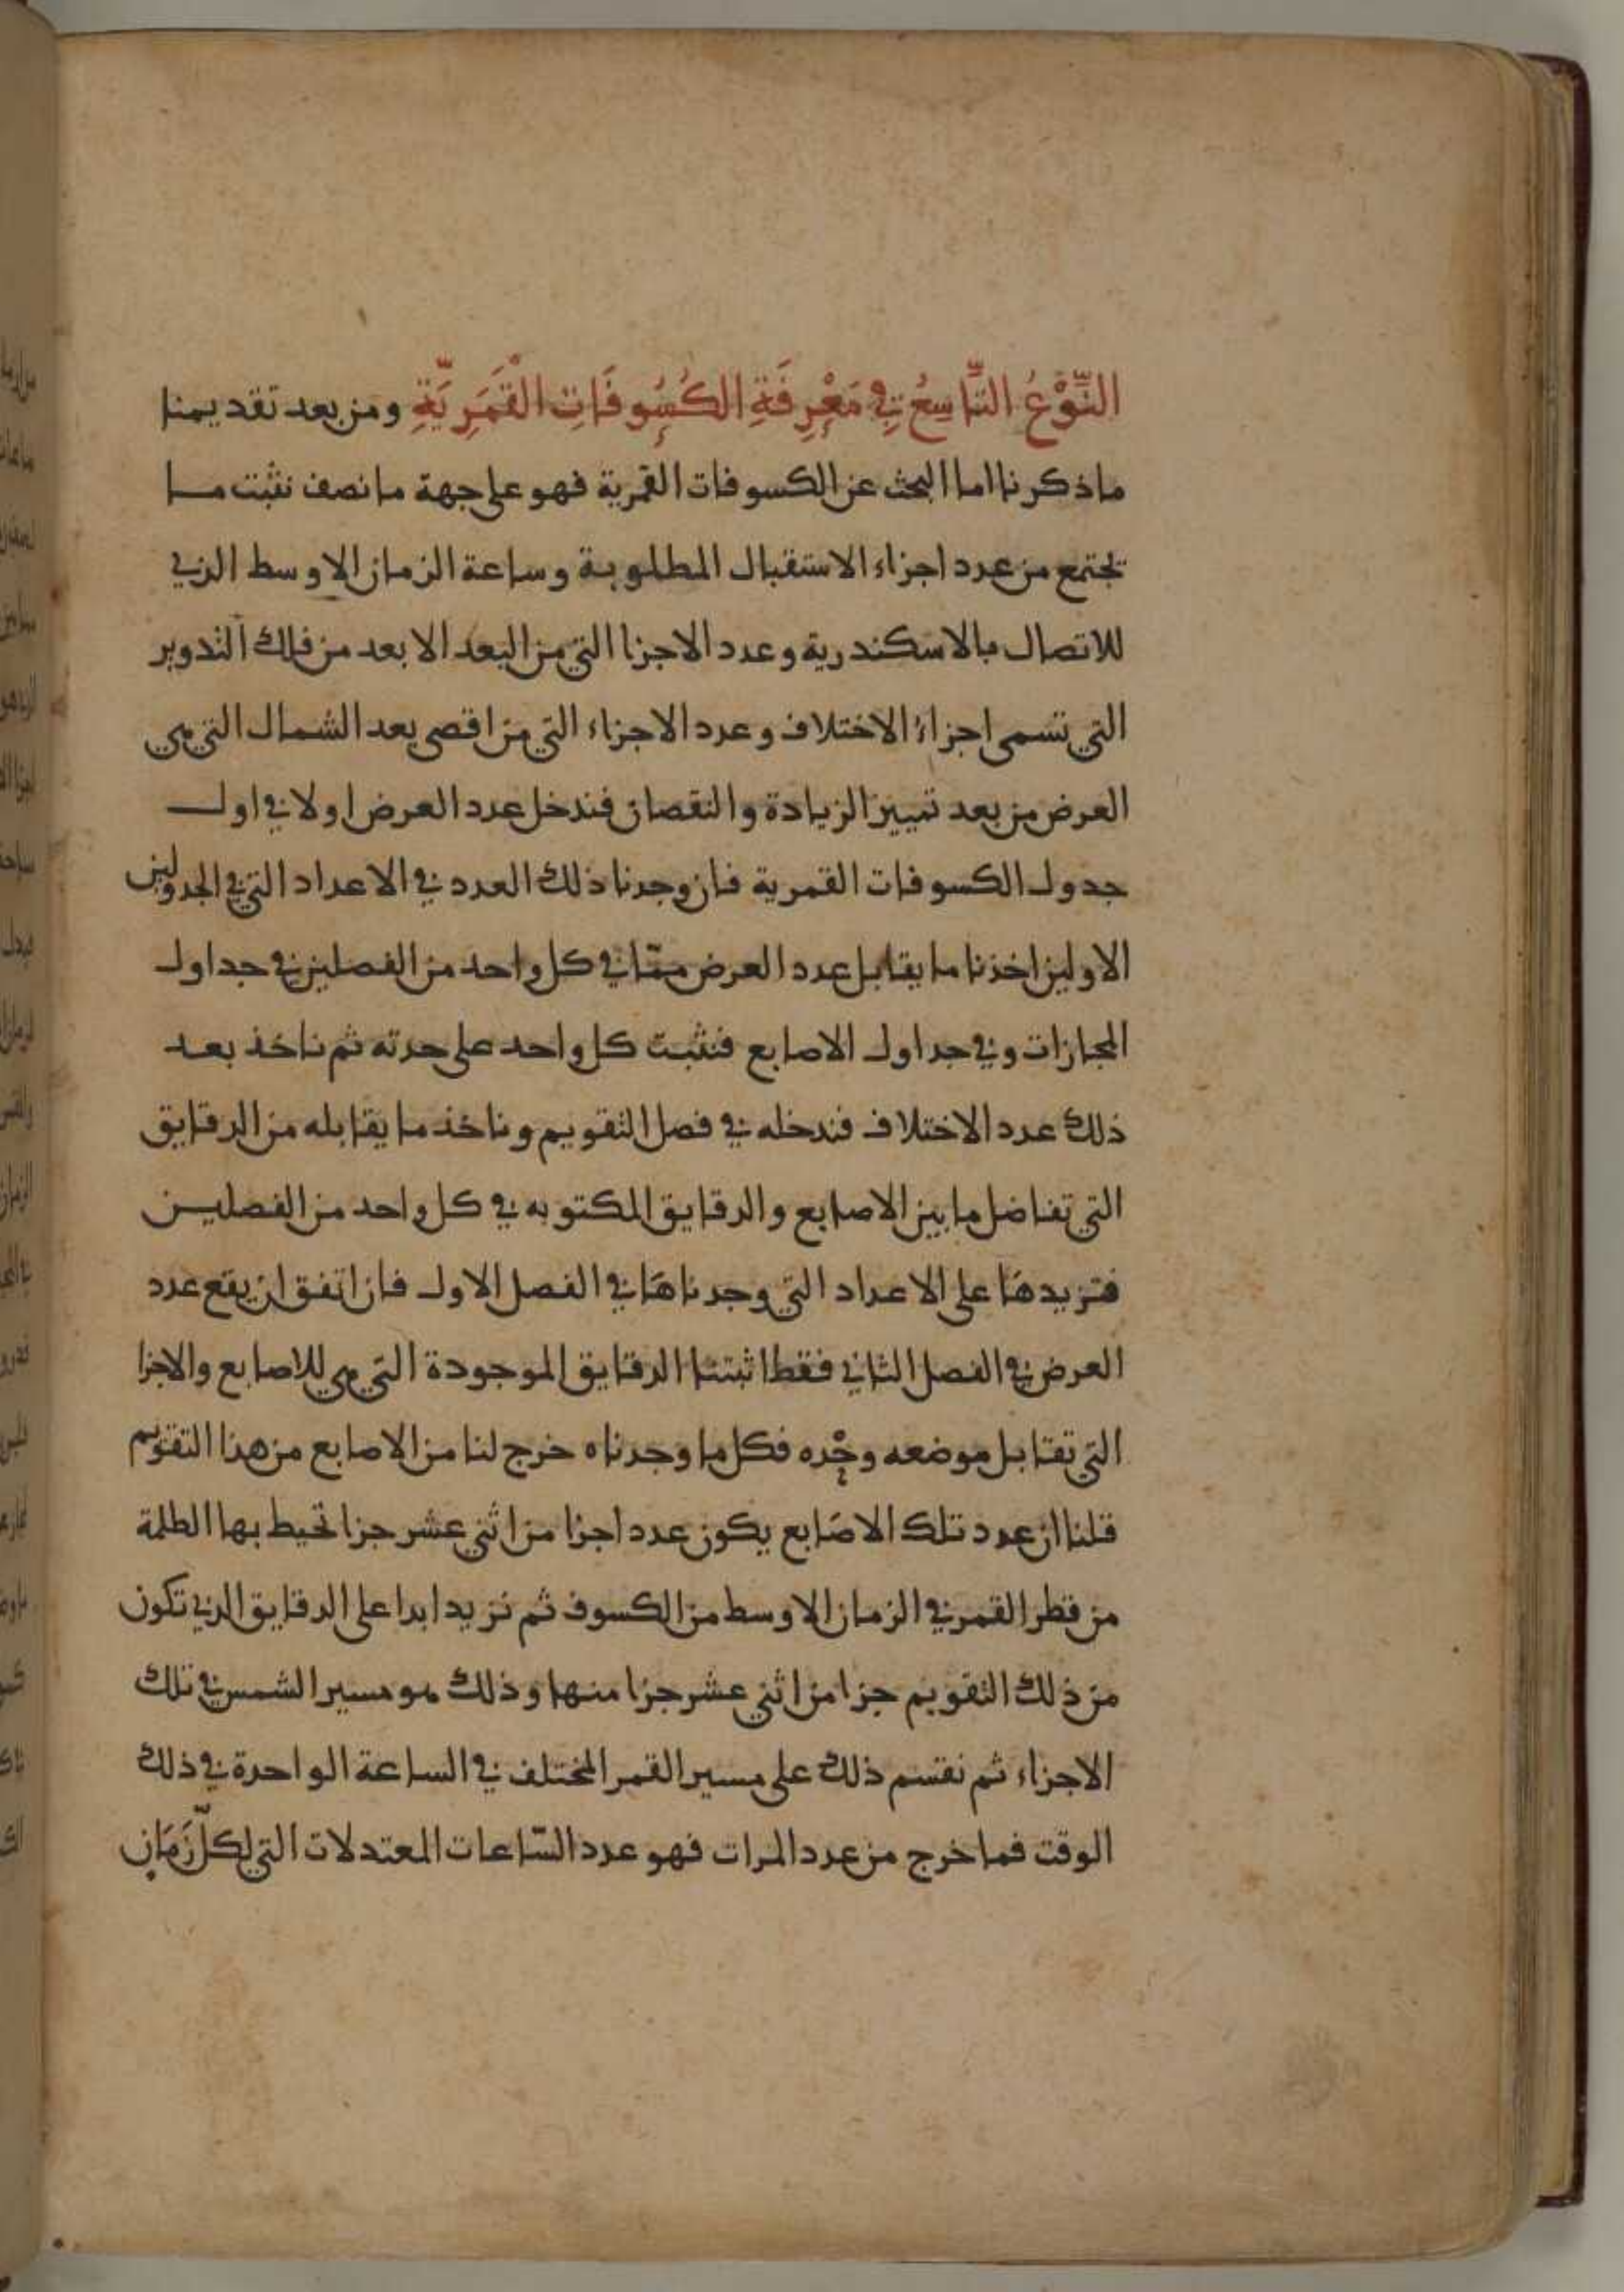 النَّوْعُ التَّاسِعُ فِي مَعْرِفَةِ الكُسُوفَاتِ الْقَمَرِيَّةِ ومن بعد تقديمنا
ماذكرنا اما البحث عن الكسوفات القمرية فهو على جهة ما نصف نثبت ما
يجتمع من عدد اجزاء الاستقبال المطلوبة وساعة الزمان الاوسط الذي
للاتصال بالاسكندرية وعدد الاجزا التي من البعد الابعد من فلك التدوير
التي تسمى اجزاء الاختلاف وعدد الاجزاء التي من اقصى بعد الشمال التي هي
العرض من بعد تمييز الزيادة والنقصان فندخل عدد العرض اولا في اول
جدول الكسوفات القمرية فان وجدنا ذلك العدد في الاعداد التي في الجدولين
الاولين اخذنا ما يقابل عدد العرض ممّا في كل واحد من الفصلين في جداول
المجازات وفي جداول الاصابع فنثبت كل واحد على حدته ثم ناخذ بعد
ذلك عدد الاختلاف فندخله في فصل التقويم وناخذ ما يقابله من الدقايق
التي تفاضل ما بين الاصابع والدقايق المكتوبه في كل واحد من الفصلين
فتزيدها على الاعداد التي وجدناها في الفصل الاول فان اتفق ان يقع عدد
العرض في الفصل الثاني فقط اثبتنا الدقايق الموجودة التي هي للاصابع والاجزا
التي تقابل موضعه وحْده فكل ما وجدناه خرج لنا من الاصابع من هذا التقويم
قلنا ان عدد تلك الاصابع يكون عدد اجزا من اثني عشر جزا تحيط بها الظلمة
من قطر القمر في الزمان الاوسط من الكسوف ثم نزيد ابدا على الدقايق الذي تكون
من ذلك التقويم جزا من اثني عشر جزا منها وذلك هو مسير الشمس في تلك
الاجزاء ثم نقسم ذلك على مسير القمر المختلف في الساعة الواحدة في ذلك
الوقت فما خرج من عدد المرات فهو عدد السّاعات المعتدلات التي لكلّ زَمَانٍ